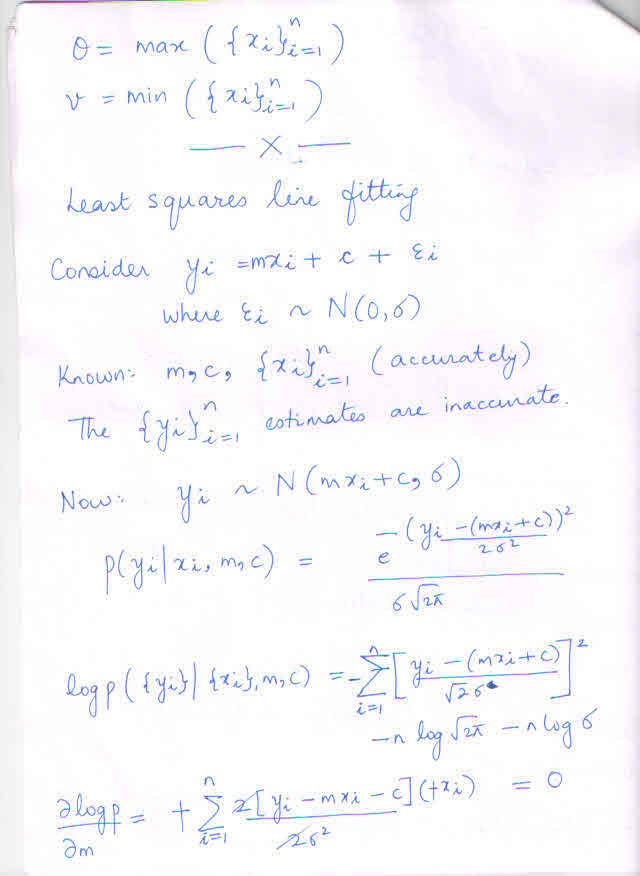 θ = max ({xi}ⁿi=1)
v = min ({xi}ⁿi=1)
— X —
Least squares line fitting
Consider yi = mxi + c + εi
where εi ~ N(0, σ)
Known: m, c, {xi}ⁿi=1 (accurately)
The {yi}ⁿi=1 estimates are inaccurate.
Now: yi ~ N(mxi + c, σ)
p(yi|xi, m, c) = e^(-(yi - (mxi + c))²/2σ²) / σ√2π
log p({yi}|{xi}, m, c) = -∑ⁿi=1 [(yi - (mxi + c))/√2σ]²
- n log √2π - n log σ
∂log p/∂m = +∑ⁿi=1 2[yi - mxi - c](+xi)/2σ² = 0